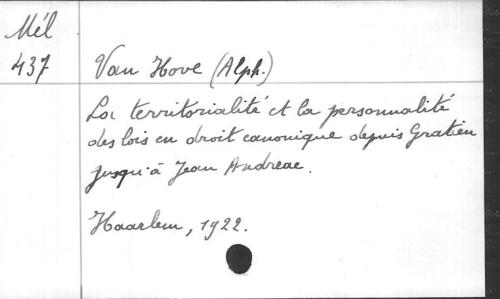 Mél
437
Van Hove (Alph.)
La territorialité et la personnalité
des lois en droit canonique depuis Gratien
jusqu'à Jean Andreae.
Haarlem, 1922.